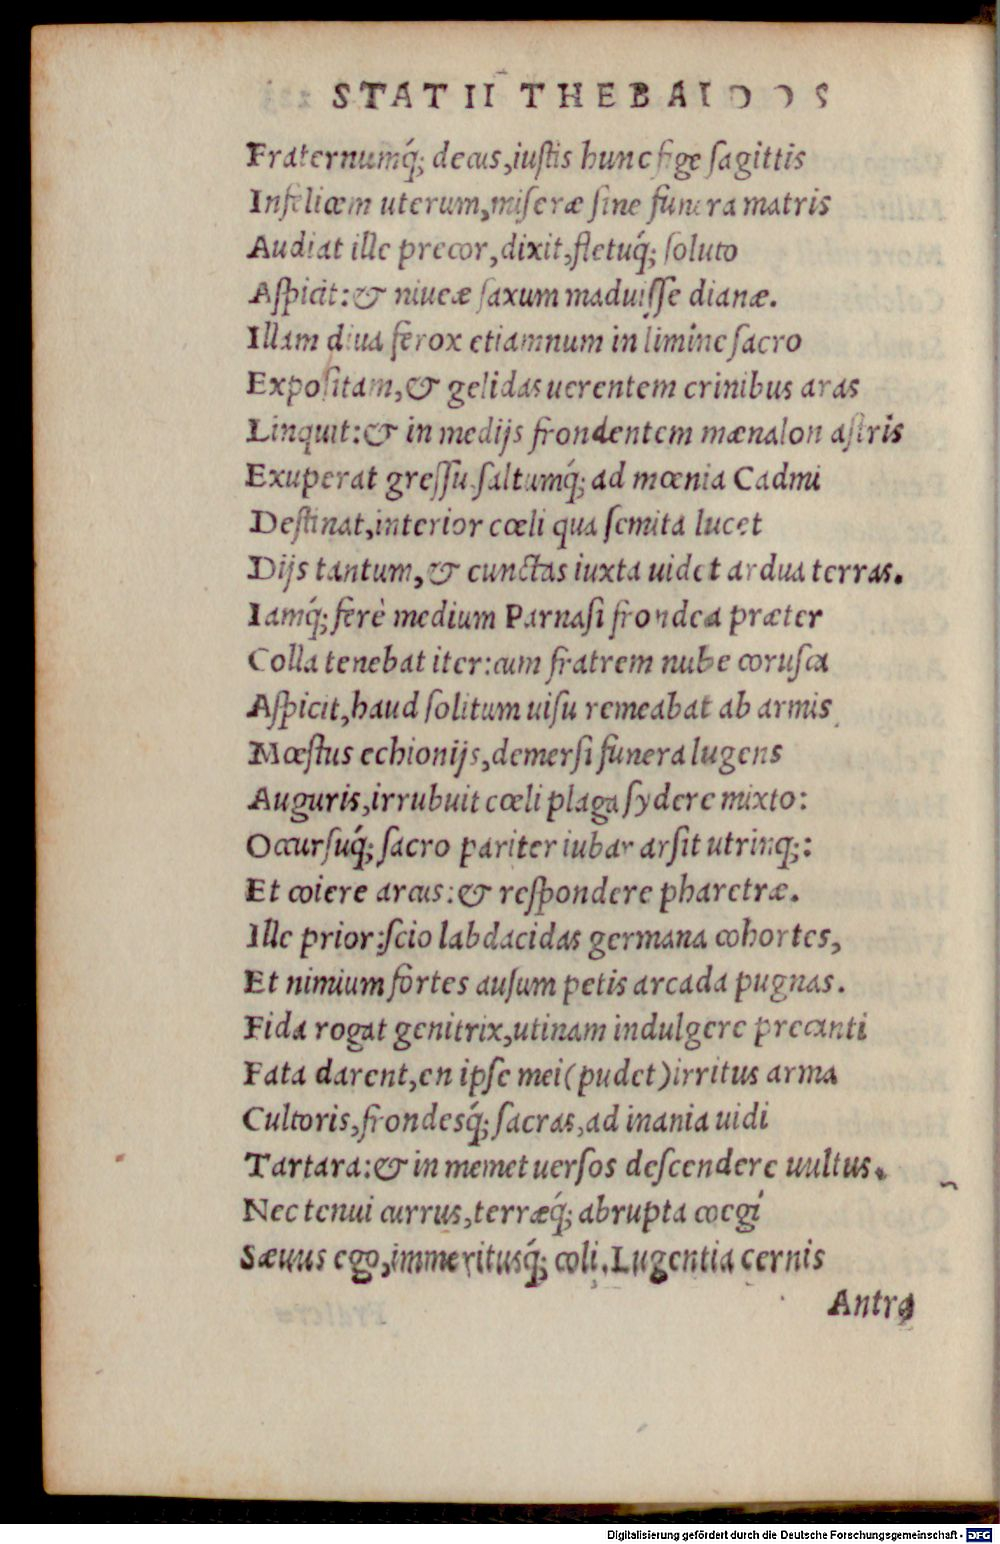 STATII THEBAIDOS
Fraternumq́; decus, iustis hunc fige sagittis
Infelicem uterum, miseræ sine funera matris
Audiat ille precor, dixit, fletuq́; soluto
Aspicit: & niueæ saxum maduisse dianæ.
Illam diua ferox etiamnum in limine sacro
Expositam, & gelidas uerentem crinibus aras
Linquit: & in medijs frondentem mænalon astris
Exuperat gressu, saltumq́; ad mœnia Cadmi
Destinat, interior cœli qua semita lucet
Dijs tantum, & cunctas iuxta uidet ardua terras.
Iamq́; ferè medium Parnasi frondea præter
Colla tenebat iter: cum fratrem nube corusca
Aspicit, haud solitum uisu remeabat ab armis
Mœstus echionijs, demersi funera lugens
Auguris, irrubuit cœli plaga sydere mixto:
Occursuq́; sacro pariter iubar arsit utrinq;:
Et coiere arcus: & respondere pharetræ.
Ille prior: scio labdacidas germana cohortes,
Et nimium fortes ausum petis arcada pugnas.
Fida rogat genitrix, utinam indulgere precanti
Fata darent, en ipse mei (pudet) irritus arma
Cultoris, frondesq́; sacras, ad inania uidi
Tartara: & in memet uersos descendere uultus.
Nec tenui currus, terræq́; abrupta coegi
Sæuus ego, immeritusq́; coli. Lugentia cernis
Antra
Digitalisierung gefördert durch die Deutsche Forschungsgemeinschaft - DFG